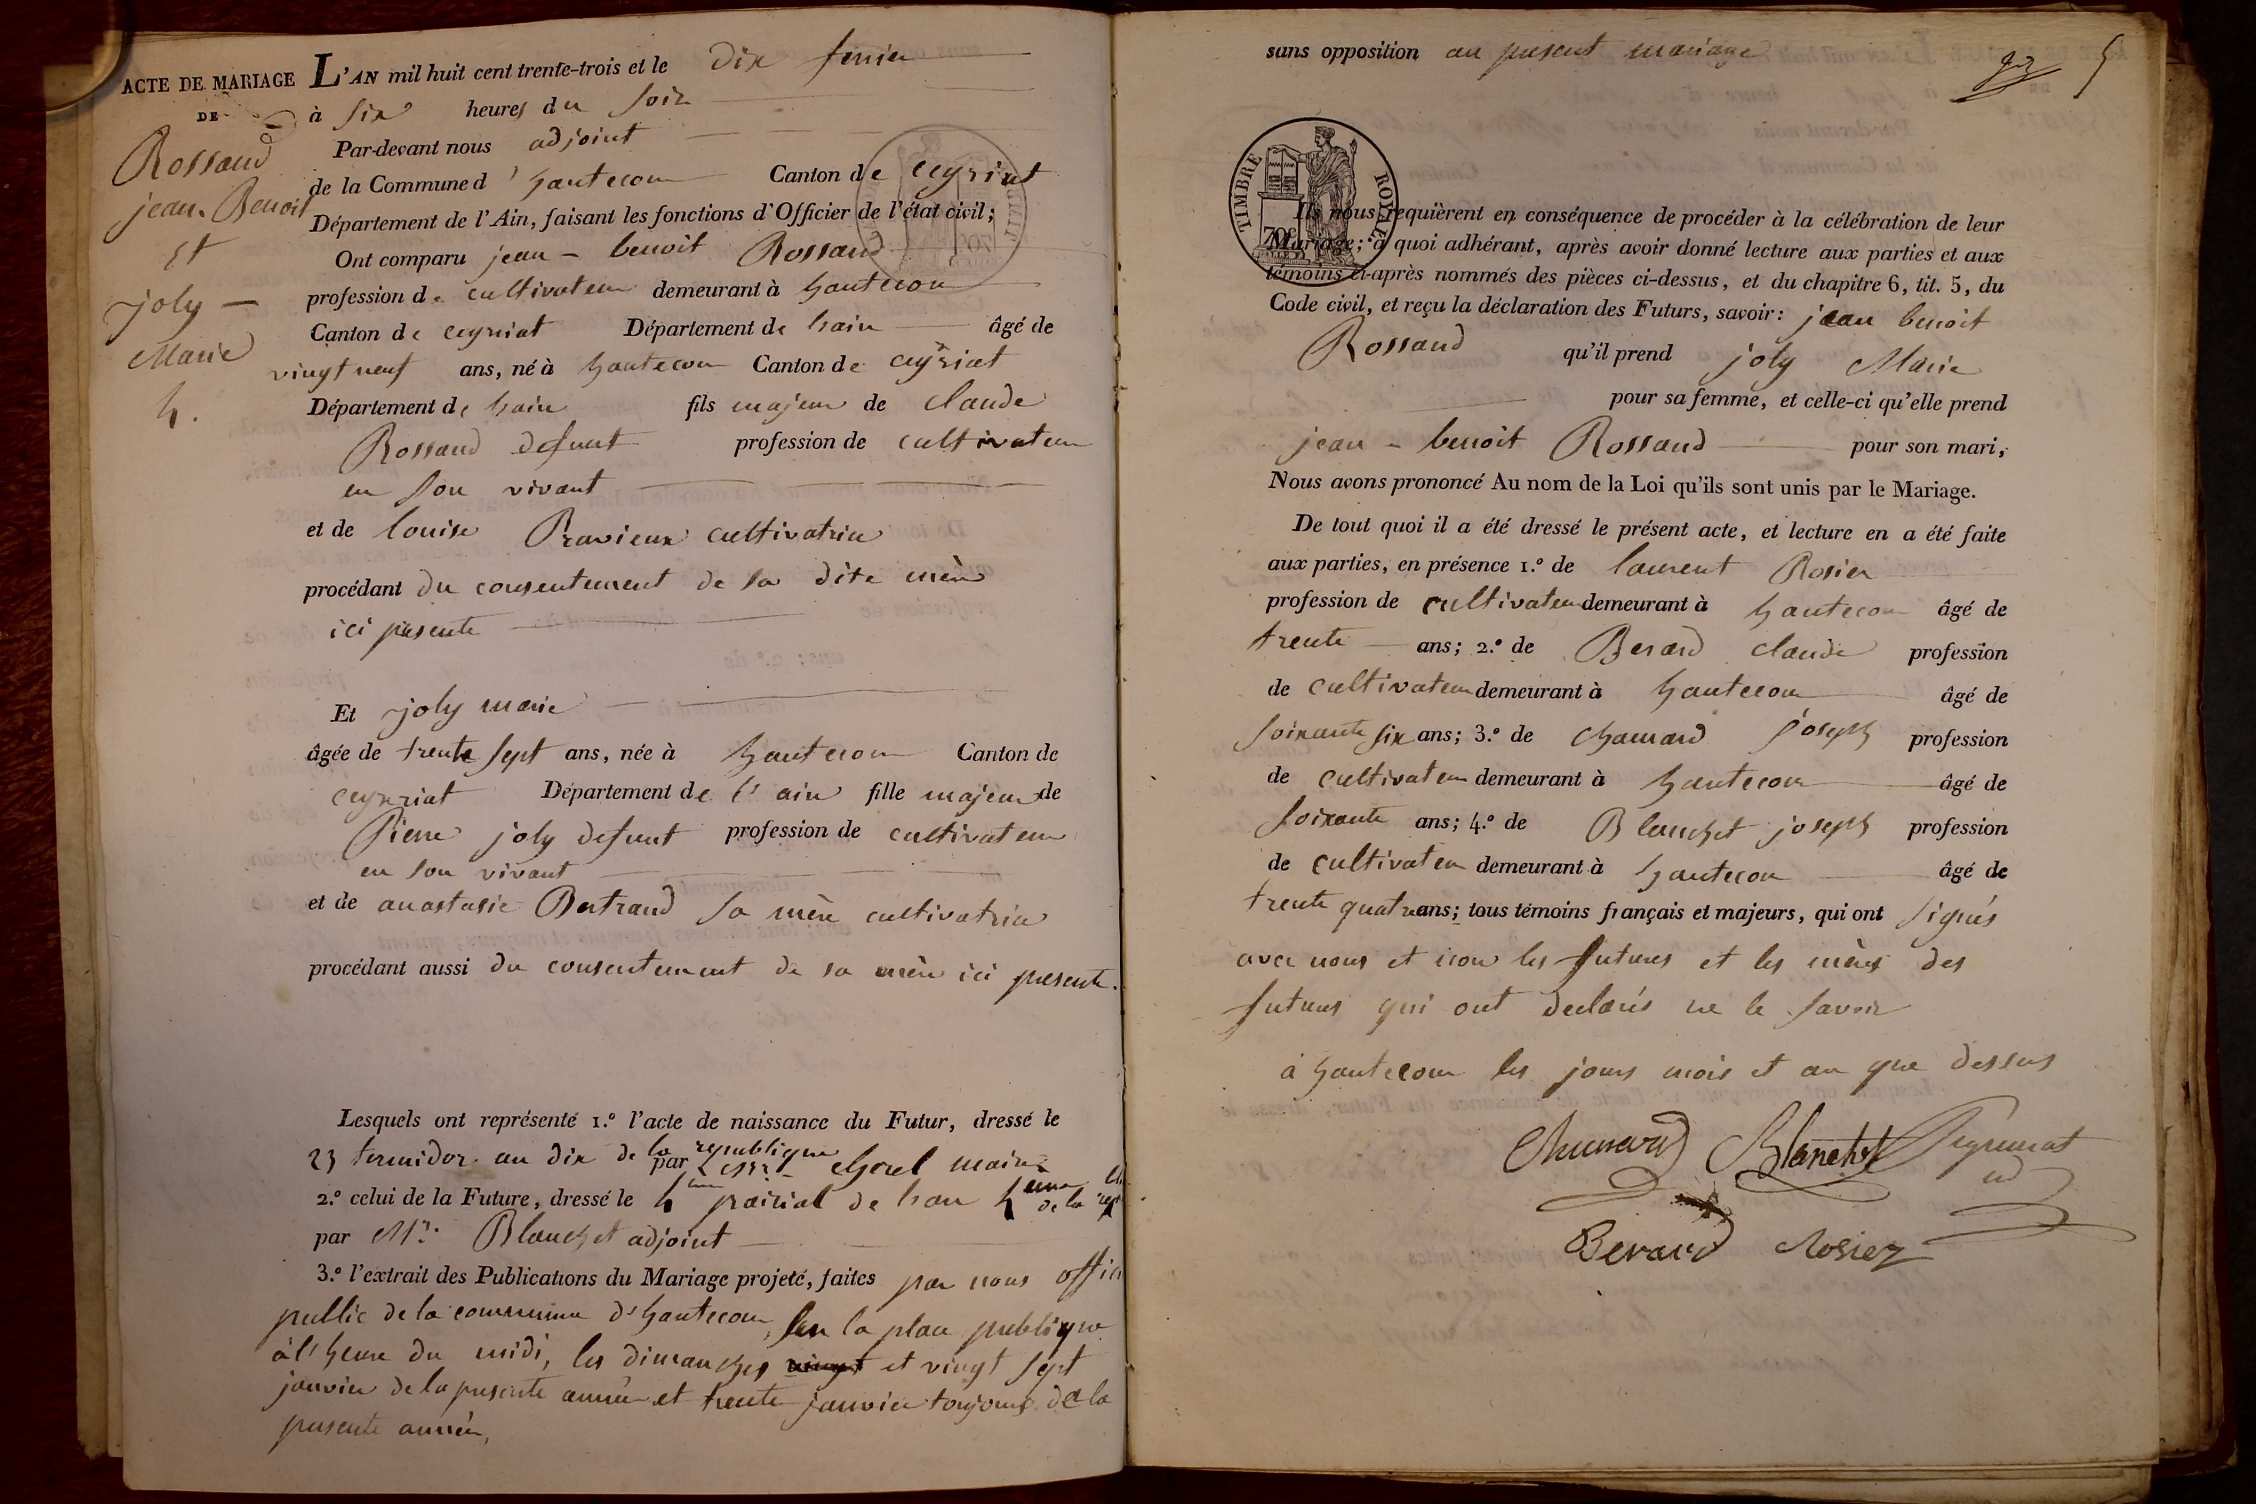 ACTE DE MARIAGE
DE
Rossand
jean-Benoit
Et
joly -
Marie
4.
L'AN mil huit cent trente-trois et le dix fevrier
à six heures du soir
Par-devant nous adjoint
de la Commune d'hautecour Canton de ceyriat
Département de l'Ain, faisant les fonctions d'Officier de l'état civil;
Ont comparu jean - benoit Rossand
profession de cultivateur demeurant à hautecour
Canton de ceyriat Département de lain âgé de
vingt neuf ans, né à hautecour Canton de ceyriat
Département de lain fils majeur de claude
Rossand defunt profession de cultivateur
en son vivant
et de louise Pravieux cultivatrice
procédant du consentement de sa dite mère
ici presente
Et joly marie
âgée de trente sept ans, née à hautecour Canton de
ceyzeriat Département de l'ain fille majeur de
Pierre joly defunt profession de cultivateur
en son vivant
et de anastasie Bertrand sa mère cultivatrice
procédant aussi du consentement de sa mère ici presente.
Lesquels ont représenté 1.º l'acte de naissance du Futur, dressé le
23 termidor an dix de la republique
par chorel maire
2.º celui de la Future, dressé le 4 prairial de lan 4 de la
par Mr. Blanchet adjoint
3.º l'extrait des Publications du Mariage projeté, faites par nous offici
public de la commune d'hautecour, sur la place publique
à l'heure du midi, les dimanches vingt et vingt sept
janvier de la presente année et trente janvier toujours de la
presente année,
sans opposition au present mariage
5
TIMBRE ROYAL
70c
Ils nous requièrent en conséquence de procéder à la célébration de leur
Mariage; à quoi adhérant, après avoir donné lecture aux parties et aux
témoins ci-après nommés des pièces ci-dessus, et du chapitre 6, tit. 5, du
Code civil, et reçu la déclaration des Futurs, savoir: jean benoit
Rossand qu'il prend joly Marie
pour sa femme, et celle-ci qu'elle prend
jean - benoit Rossand pour son mari,
Nous avons prononcé Au nom de la Loi qu'ils sont unis par le Mariage.
De tout quoi il a été dressé le présent acte, et lecture en a été faite
aux parties, en présence 1.º de laurent Rosier
profession de cultivateur demeurant à hautecour âgé de
trente ans; 2.º de Berard claude profession
de cultivateur demeurant à hautecour âgé de
soixante six ans; 3.º de chanard joseph profession
de cultivateur demeurant à hautecour âgé de
soixante ans; 4.º de Blanchet joseph profession
de cultivateur demeurant à hautecour âgé de
trente quatre ans; tous témoins français et majeurs, qui ont signés
avec nous et non les futures et les mères des
futurs qui ont declarés ne le savoir
à hautecour les jours mois et an que dessus
Chunard Blanchet
Berard Rosier